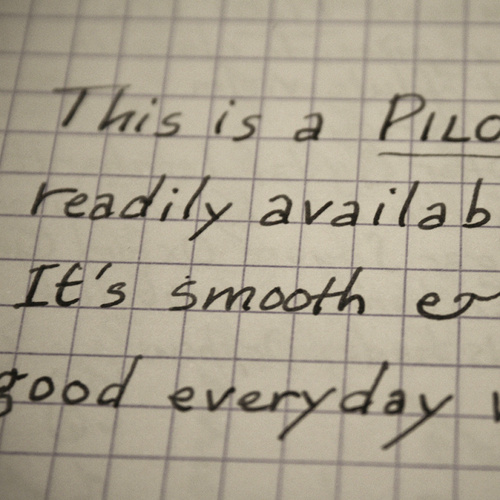 This is a PILO
readily availab
It's smooth
good everyday